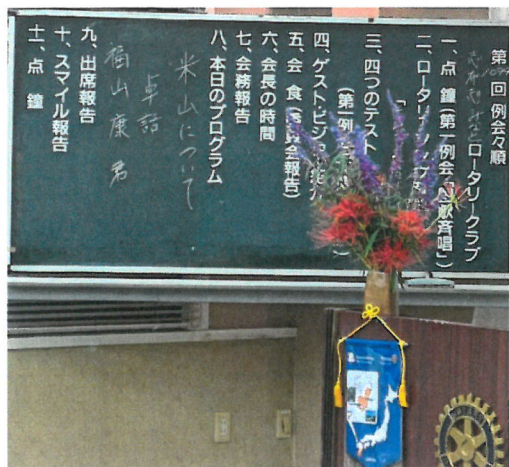 第 回 例会々順
ロータリークラブ
一、点 鐘(第一例会 斉唱」)
二、ロータリーソング
三、四つのテスト
(第一例会
四、ゲスト・ビジター紹介
五、会 食(委員会報告)
六、会長の時間
七、会務報告
八、本日のプログラム
米山について
卓話
福山 康 君
九、出席報告
十、スマイル報告
十一、点 鐘